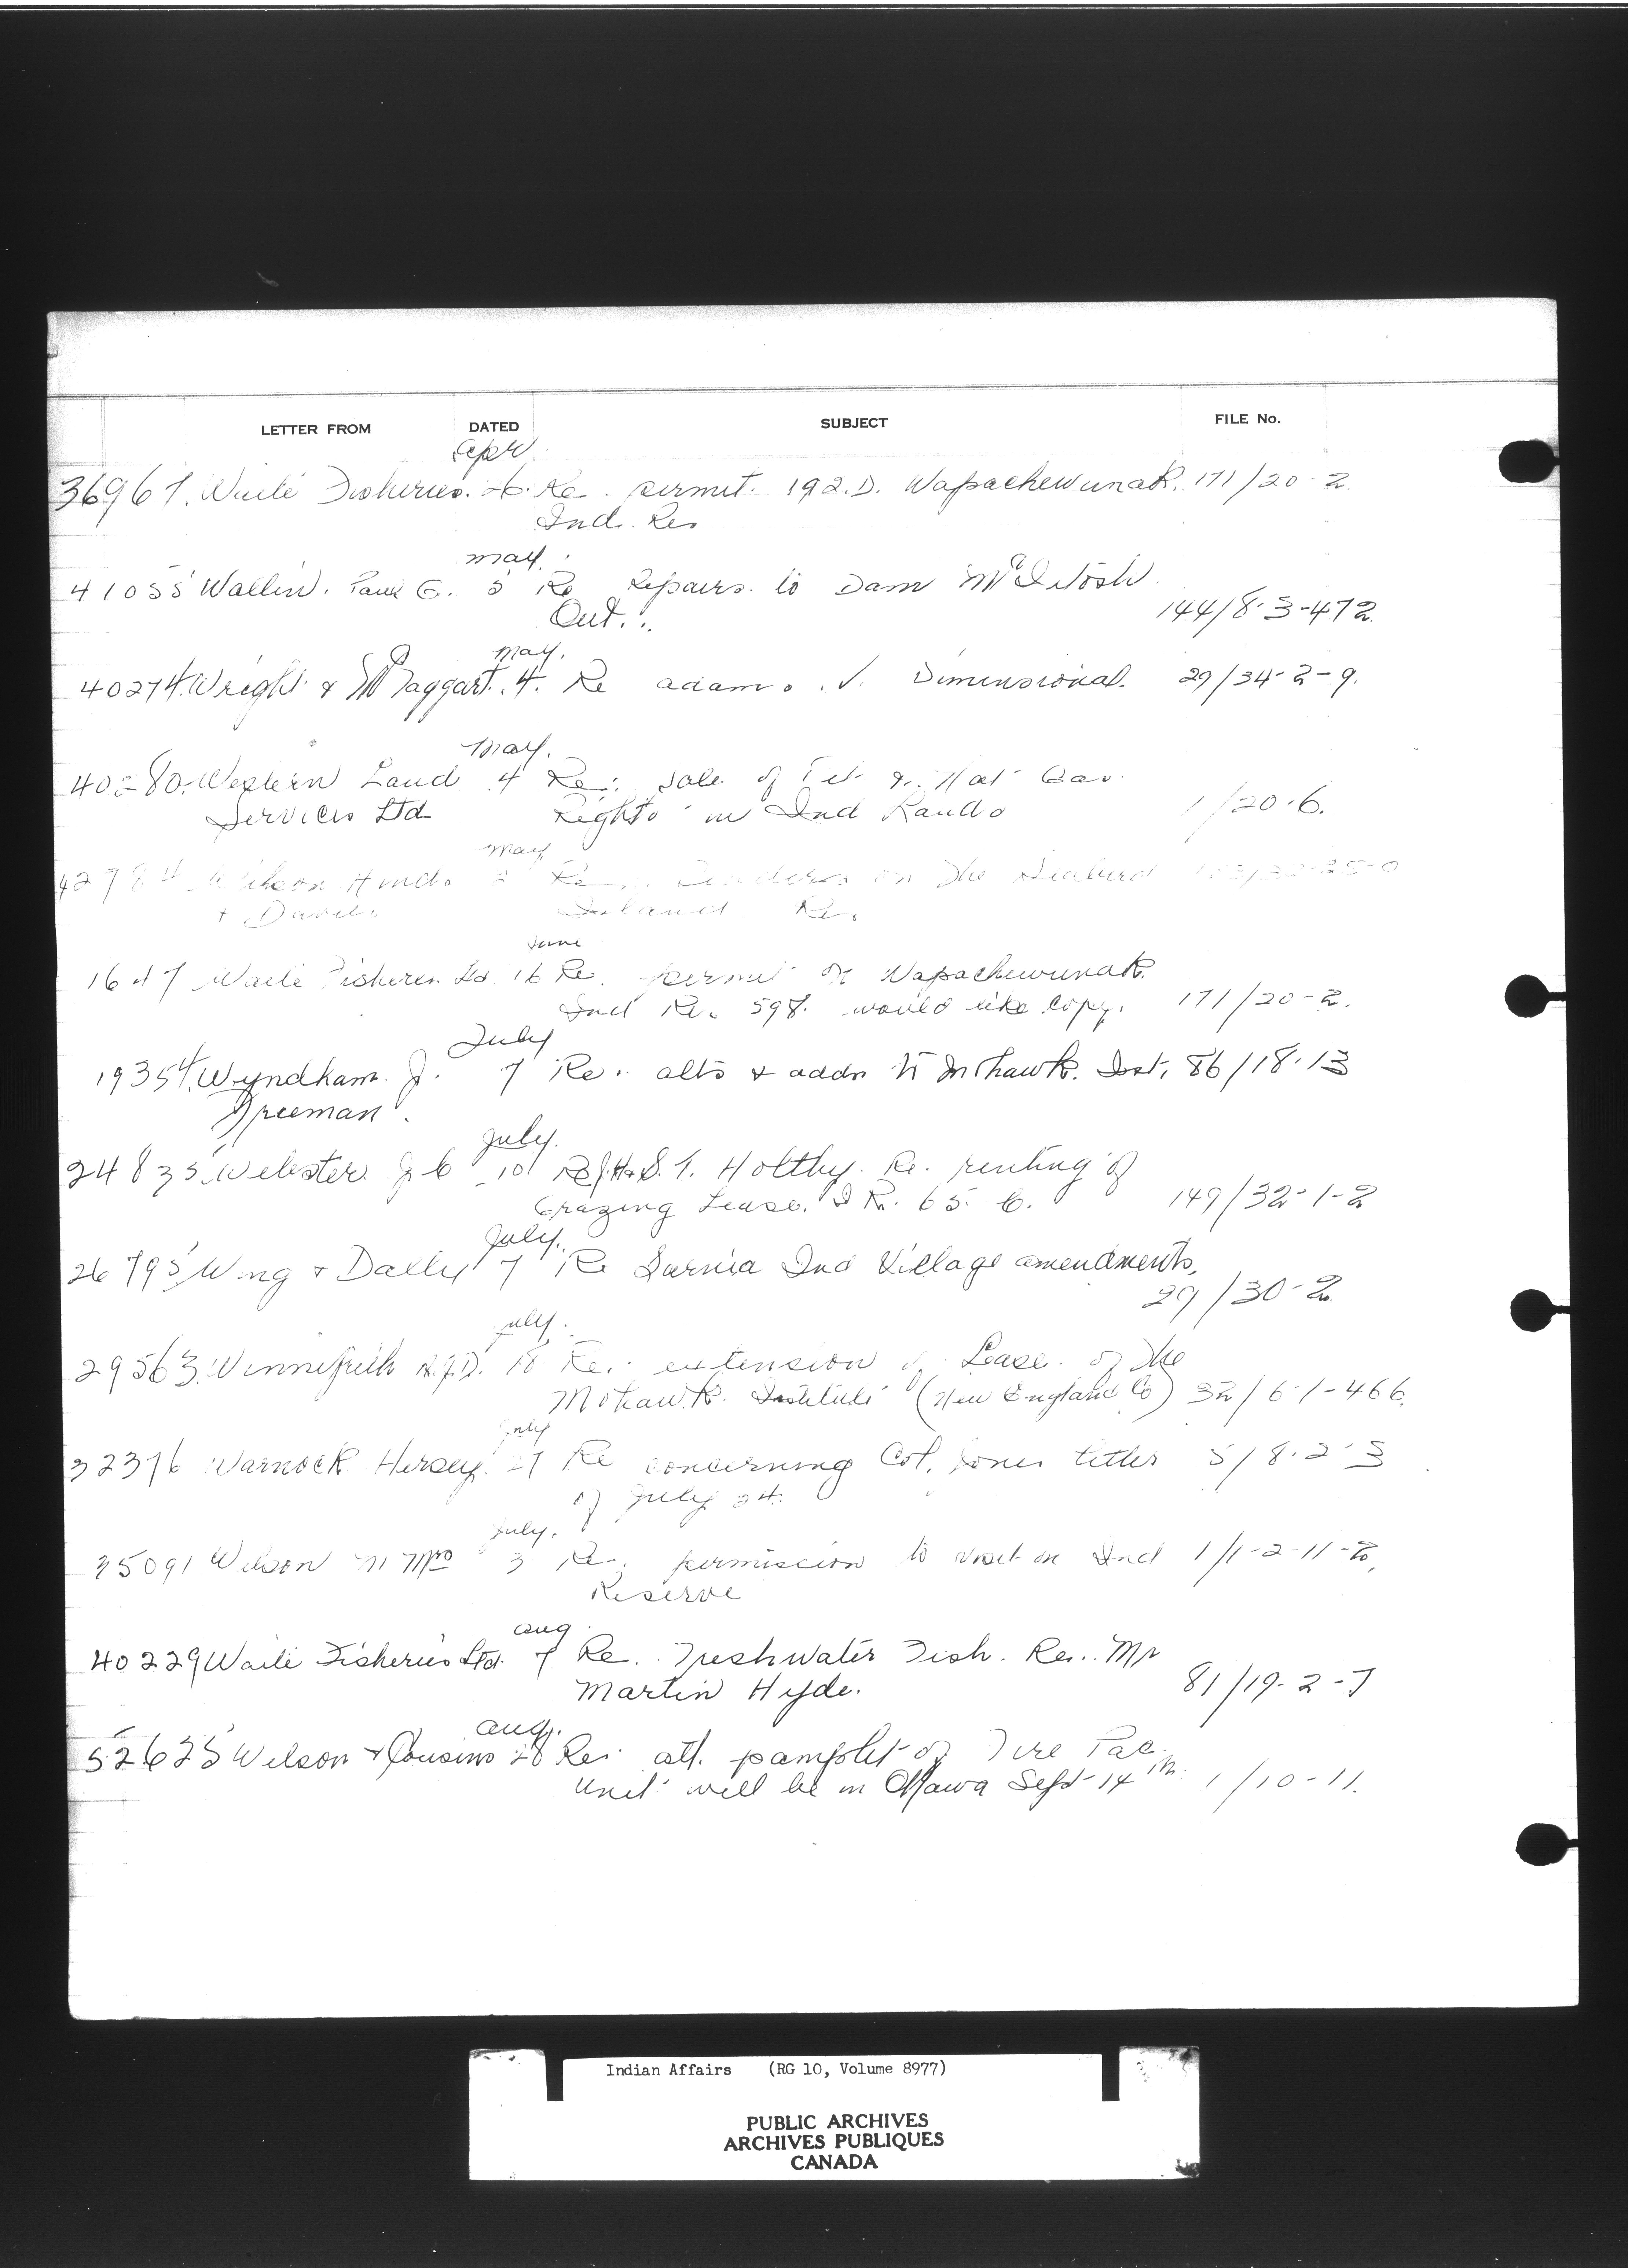 LETTER FROM DATED SUBJECT FILE No.
Apr
36967. Waite Fisheries. 26. Re. permit. 192.D. Wapachewunak. 171/20-2
Ind. Res
May.
41055 Wallin. Paul G. 5 Re Repairs. to Dam McIntosh
Ont. 144/8-3-472
May.
40274 Wright & McTaggart. 4. Re Adams. V. Dimensional. 29/34-2-9.
May.
40280. Western Land 4 Re: sale of Pet & Nat Gas
Services Ltd Rights in Ind Lands 1/20-6.
May
42784 Hinds Re. on the
& Davis Island Re.
June
1647 Waite Fisheries Ltd 16 Re. permit on Wapachewunak
Ind Re. 598. would like copy. 171/20-2.
July
19354. Wyndham. J. 7 Re. alts & addn to Mohawk. Inst. 86/18-13
Freeman.
July.
24835 Webster. J C 10 Re H.S.T. Holtby. Re. renting of
Grazing Lease. I R. 65. C. 149/32-1-2
July.
26795 Wing & Dally 7 Re Sarnia Ind Village amendments,
29/30-2
July.
29563. Winnifrith A.J.D. 10 Re. extension of Lease. of the
Mohawk. Institute (New England Co) 32/6-1-466.
July
32376 Warnock Hersey. 7 Re concerning Col. Jones letter 5/8-2-3
of July 24.
July.
35091 Wilson M Mrs 3 Re. permission to visit on Ind 1/1-2-11-2,
Reserve
Aug
40229 Waite Fisheries Ltd. 7 Re. Freshwater Fish. Re.. Mr
Martin Hyde. 81/19-2-7
Aug.
52625 Wilson & Cousins 28 Re: att. pamphlet of Fire Pac
Unit will be in Ottawa Sept 14th. 1/10-11.
Indian Affairs (RG 10, Volume 8977)
PUBLIC ARCHIVES
ARCHIVES PUBLIQUES
CANADA